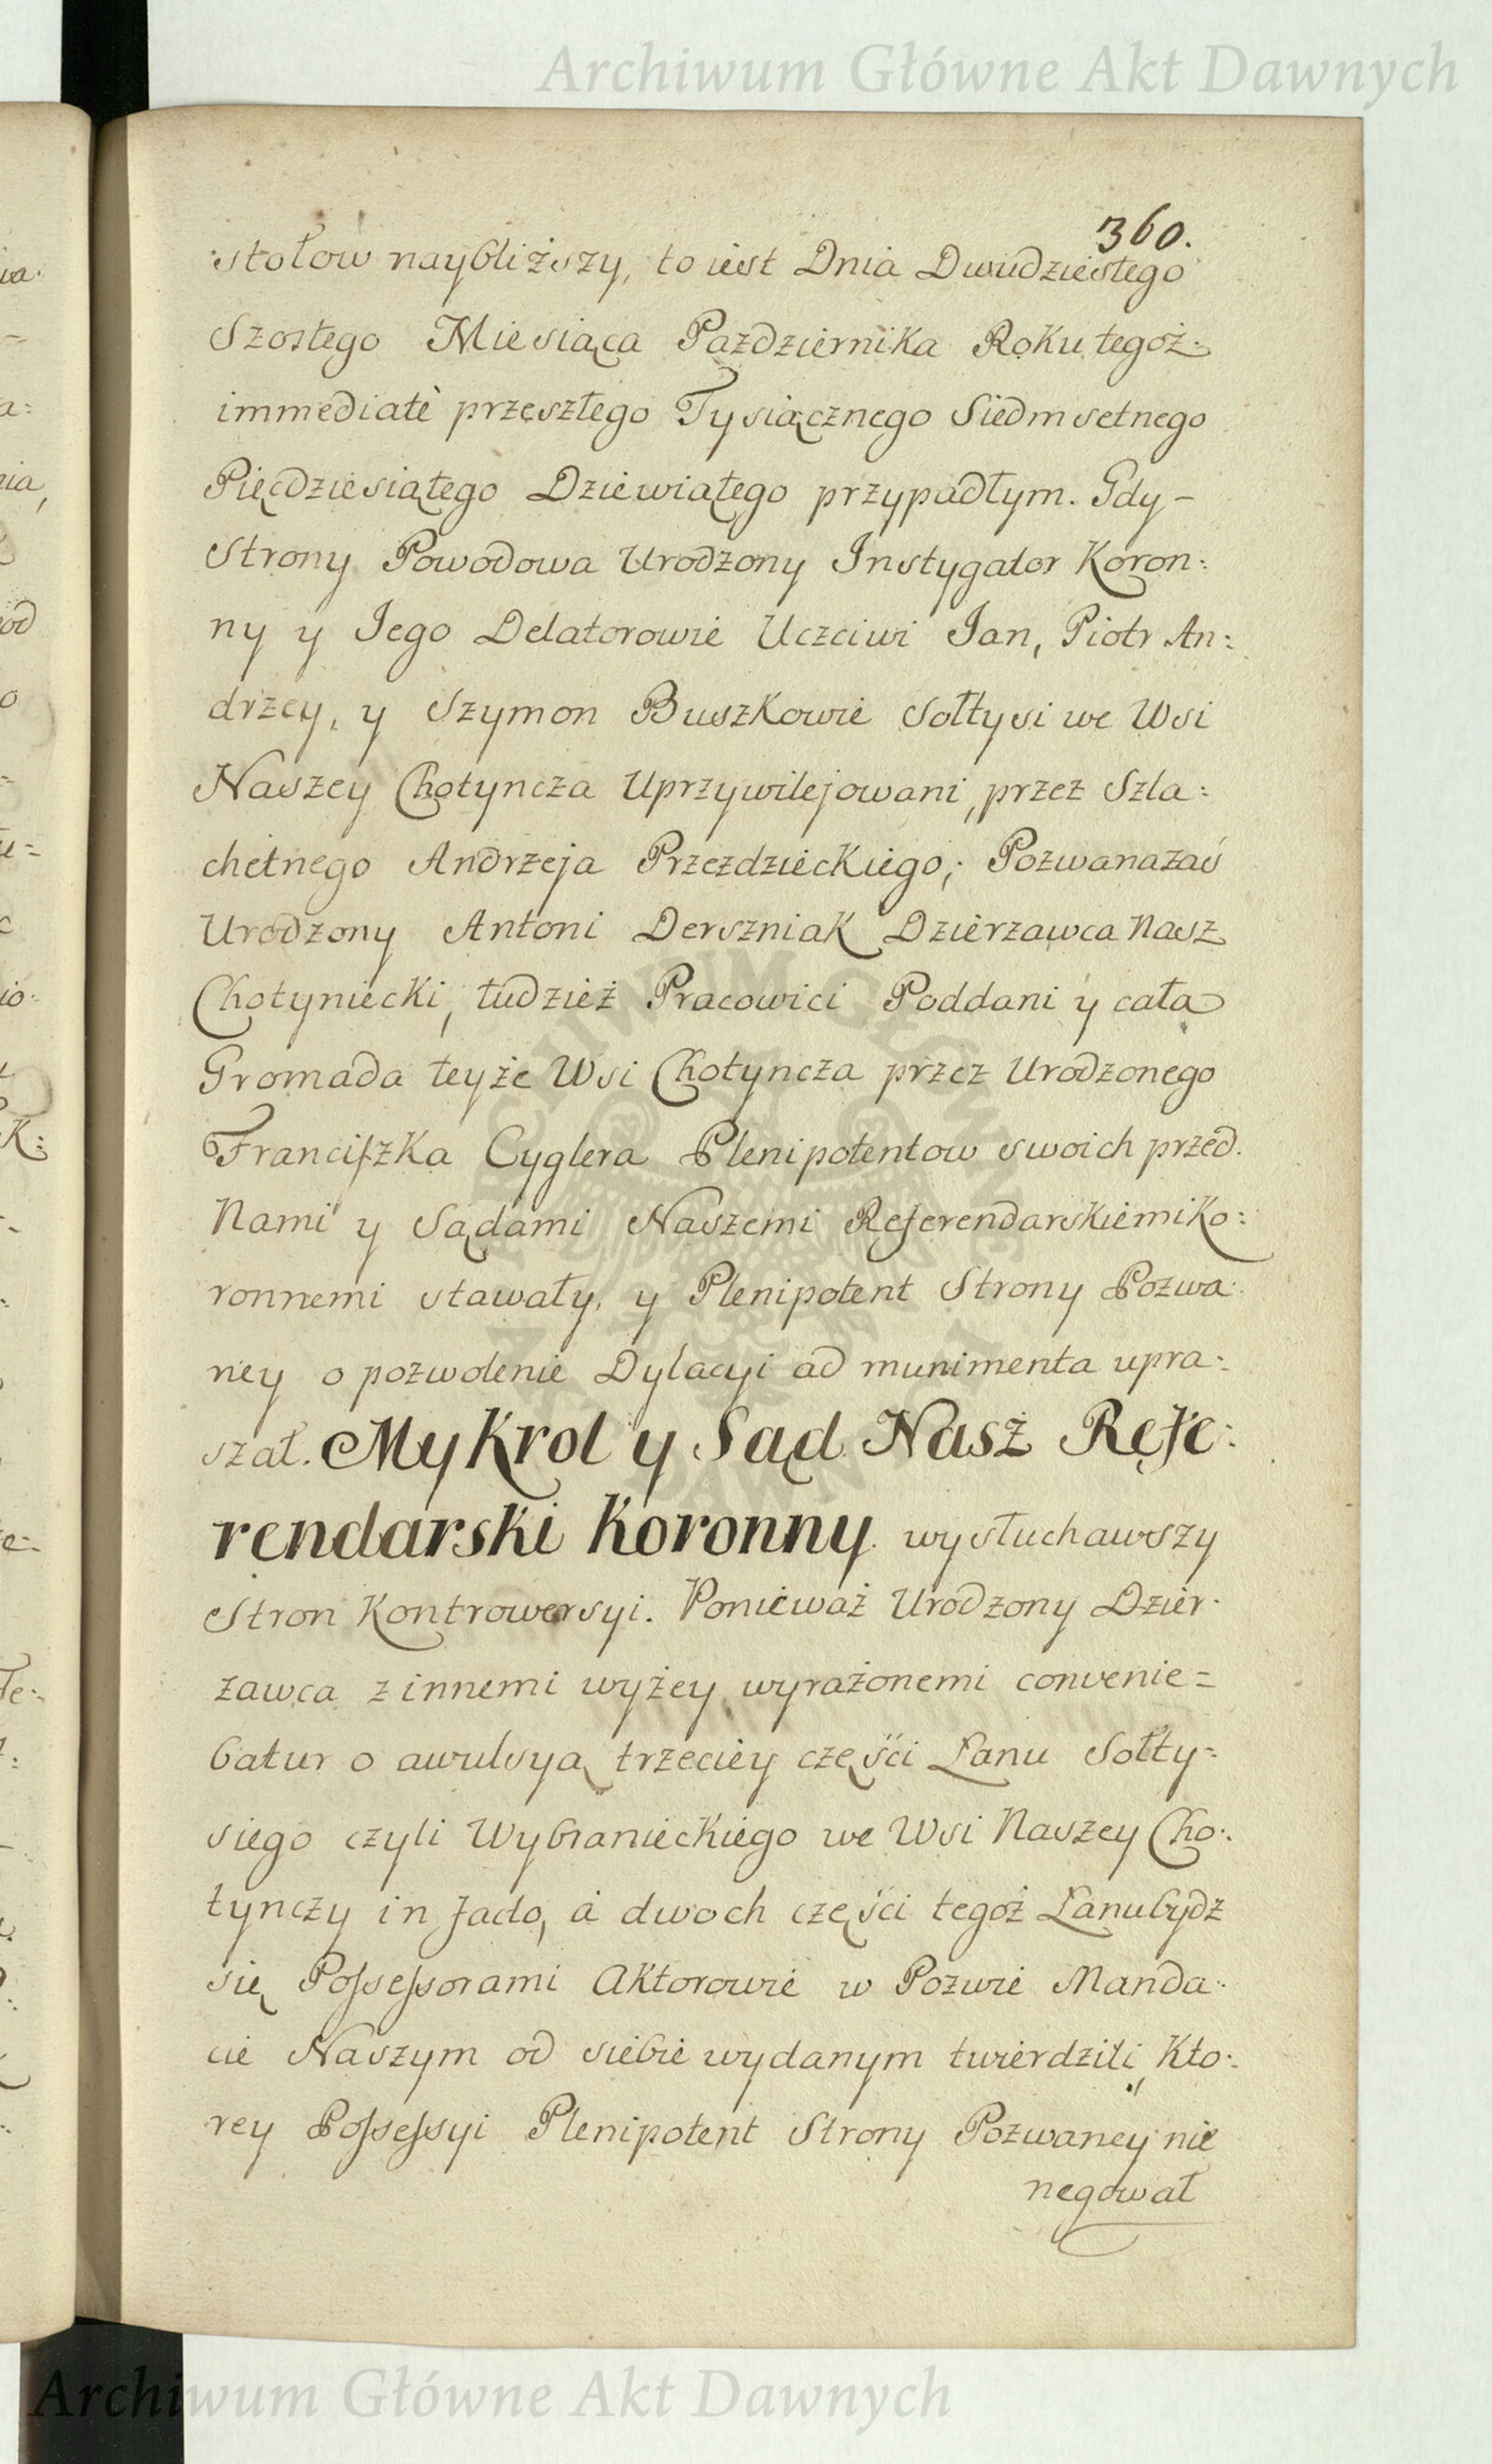 Archiwum Główne Akt Dawnych
360.
stołow naybliższy, to iest Dnia Dwudziestego
Szostego Miesiąca Pazdziernika Roku tegoż
immediatè przeszłego Tysiącznego Siedmsetnego
Pięcdziesiątego Dziewiątego przypadłym. Gdy -
Strony Powodowa Urodzony Instygator Koron:
ny y Jego Delatorowie Uczciwi Jan, Piotr An:
drzey, y Szymon Buszkowie Sołtysi we Wsi
Naszey Chotyncza Uprzywilejowani, przez Szla:
chetnego Andrzeja Przezdzieckiego; Pozwana zaś
Urodzony Antoni Derszniak Dzierzawca Nasz
Chotyniecki, tudzież Pracowici Poddani y cała
Gromada teyże Wsi Chotyncza przez Urodzonego
Franciszka Cyglera Plenipotentow swoich przed
Nami y Sądami Naszemi Referendarskiemi Ko:
ronnemi stawały, y Plenipotent Strony Pozwa:
ney o pozwolenie Dylacyi ad munimenta upra:
szał. My Krol y Sąd Nasz Refe:
rendarski Koronny wysłuchawszy
Stron Kontrowersyi. Ponieważ Urodzony Dzier:
zawca z innemi wyżey wyrażonemi convenie=
batur o awulsyą trzeciey części Łanu Sołty=
siego czyli Wybranieckiego we Wsi Naszey Cho:
tynczy in facto, a dwoch części tegoż Łanu bydz
się Possessorami Aktorowie w Pozwie Manda:
cie Naszym od siebie wydanym twierdzili, Kto:
rey Possessyi Plenipotent Strony Pozwaney nie
negował
Archiwum Główne Akt Dawnych